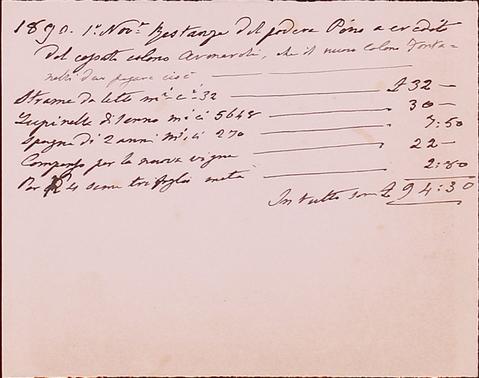 1890. 1º Nov.e Restanze del podere Pino a credito
del cessato colono che il nuovo colono Fonta-
nelli deve pagare cioè
Strame da letto mi ci 32 £ 32 —
Lupinella di senno mi ci 5648 30 —
Spagna di 2 anni mi, ci 270 7:50
Compenso per la nuova vigna 22 —
Per seme trifoglio metà 2:80
In tutto son £ 94:30